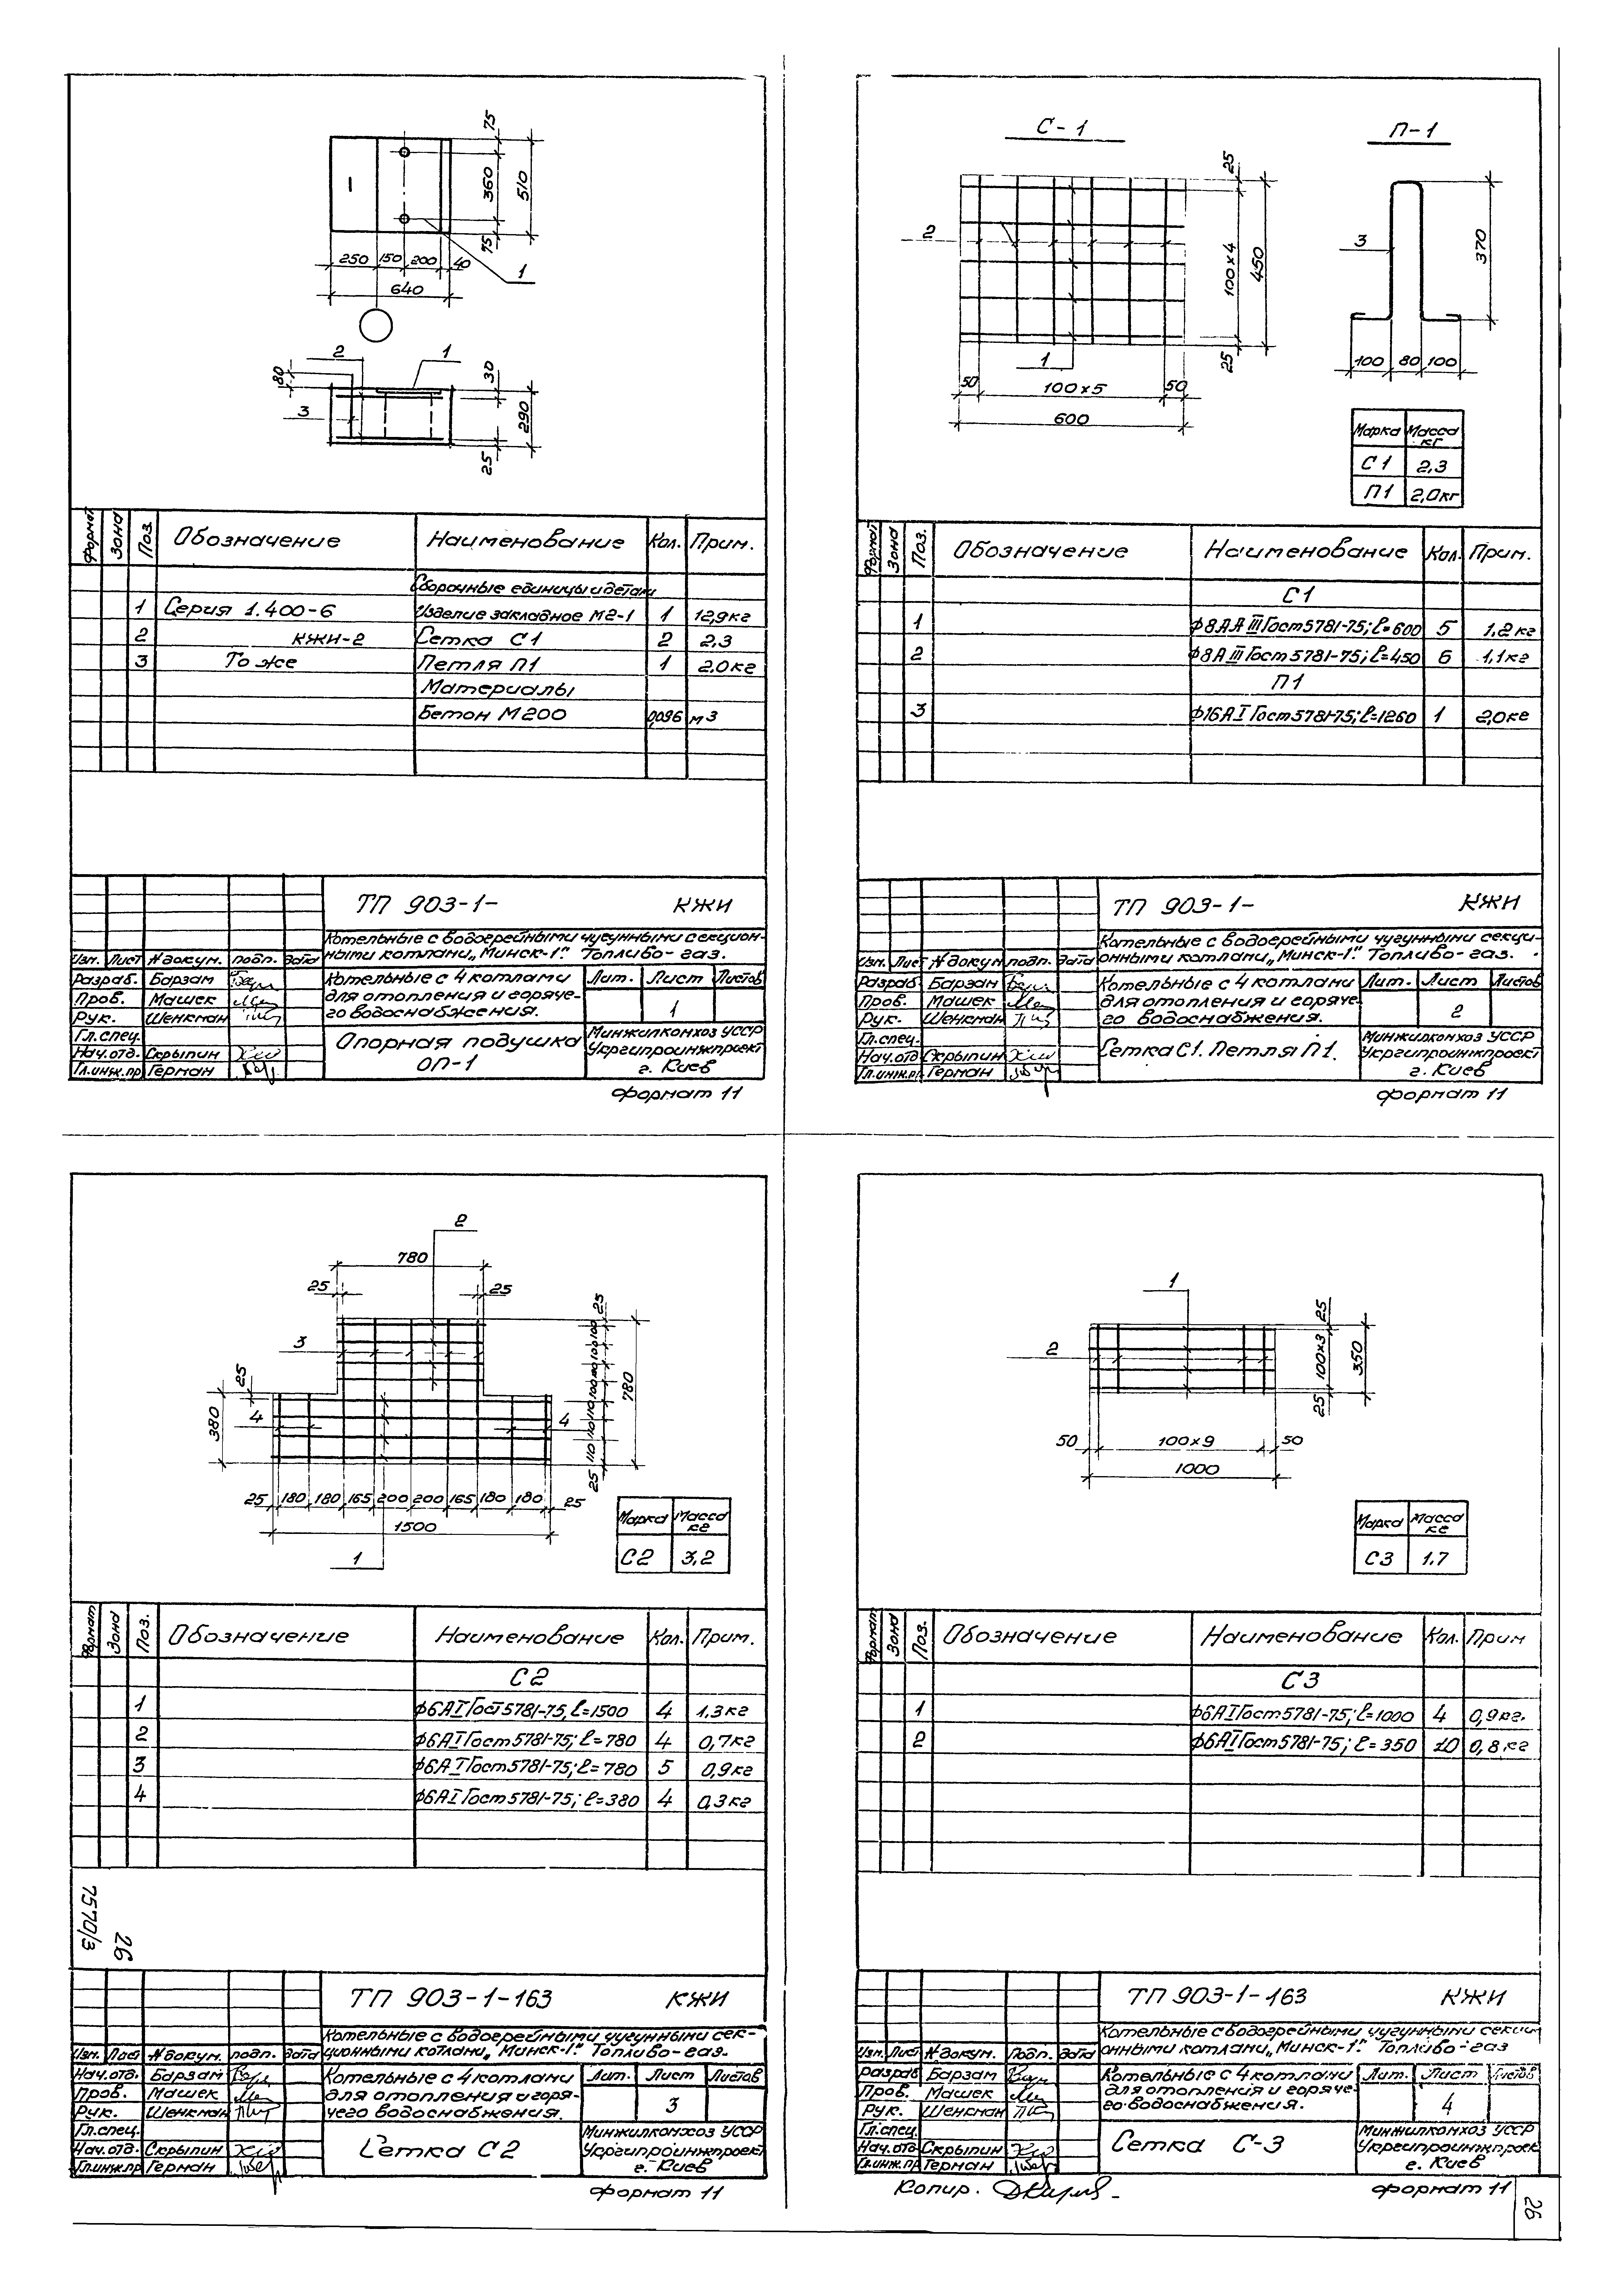 75
360
510
75
250 150 200 40
1
640
2 1
80
30
3
290
25
Формат Зона Поз. Обозначение Наименование Кол. Прим.
Сборочные единицы и детали
1 Серия 1.400-6 Изделие закладное М2-1 1 12,9кг
2 КЖИ-2 Сетка С1 2 2,3
3 То же Петля П1 1 2.0кг
Материалы
Бетон М200 0,096 м3
ТП 903-1- КЖИ
Котельные с водогрейными чугунными секцион-
ными котлами „Минск-1". Топливо-газ.
Изм. Лист N докум. подп. Дата
Разраб. Барзам
Пров. Машек
Рук. Шенкман
Гл.спец.
Нач.отд. Скрыпин
Гл.инж.пр Герман
Котельные с 4 котлами
для отопления и горяче-
го водоснабжения.
Лит. Лист Листов
1
Опорная подушка
ОП-1
Минжилкомхоз УССР
Укргипроинжпроект
г. Киев
формат 11
С-1 П-1
25
2
100x4
450
3
370
1
25
50 100x5 50
600
100 80 100
Марка Масса кг
С1 2,3
П1 2,0кг
Формат Зона Поз. Обозначение Наименование Кол. Прим.
С1
1 ф8АAIII Гост5781-75; ℓ=600 5 1,2кг
2 ф8АIII Гост 5781-75; ℓ=450 6 1,1кг
П1
3 ф16АI Гост5781-75; ℓ=1260 1 2,0кг
ТП 903-1- КЖИ
Котельные с водогрейными чугунными секци-
онными котлами „Минск-1". Топливо-газ.
Изм. Лист N докум подп. Дата
Разраб Барзам
Пров. Машек
Рук. Шенкман
Гл.спец.
Нач.отд Скрыпин
Гл.инж.пр Герман
Котельные с 4 котлами
для отопления и горяче-
го водоснабжения.
Лит. Лист Листов
2
Сетка С1. Петля П1.
Минжилкомхоз УССР
Укргипроинжпроект
г. Киев
формат 11
2
780
25 25
25
3
100 100 100 100 110 110 110
780
25
380
4 4
25
25 180 180 165 200 200 165 180 180 25
1500
1
Марка Масса кг
С2 3,2
Формат Зона Поз. Обозначение Наименование Кол. Прим.
С2
1 ф6АI Гост 5781-75, ℓ=1500 4 1.3кг
2 ф6АI Гост 5781-75; ℓ=780 4 0,7кг
3 ф6АI Гост 5781-75; ℓ=780 5 0,9кг
4 ф6АI Гост 5781-75; ℓ=380 4 0,3кг
7570/3
26
ТП 903-1-163 КЖИ
Котельные с водогрейными чугунными сек-
ционными котлами „Минск-1". Топливо-газ.
Изм. Лист N докум. подп. Дата
Нач.отд. Барзам
Пров. Машек
Рук. Шенкман
Гл.спец.
Нач.отд. Скрыпин
Гл.инж.пр Герман
Котельные с 4 котлами
для отопления и горя-
чего водоснабжения.
Лит. Лист Листов
3
Сетка С2
Минжилкомхоз УССР
Укргипроинжпроект
г. Киев
формат 11
1
25
2
100x3
350
25
50 100x9 50
1000
Марка Масса кг
С3 1.7
Формат Зона Поз. Обозначение Наименование Кол. Прим
С3
1 ф6АI Гост 5781-75; ℓ=1000 4 0,9кг.
2 ф6АI Гост 5781-75; ℓ=350 10 0,8кг
ТП 903-1-163 КЖИ
Котельные с водогрейными чугунными секци
онными котлами „Минск-1". Топливо-газ
Изм. Лист N докум. Подп. Дата
Разраб Барзам
Пров. Машек
Рук. Шенкман
Гл.спец.
Нач.отд Скрыпин
Гл.инж.пр Герман
Котельные с 4 котлами
для отопления и горяче-
го водоснабжения.
Лит. Лист Листов
4
Сетка С-3
Минжилкомхоз УССР
Укргипроинжпроек
г. Киев
Копир.
формат 11
26